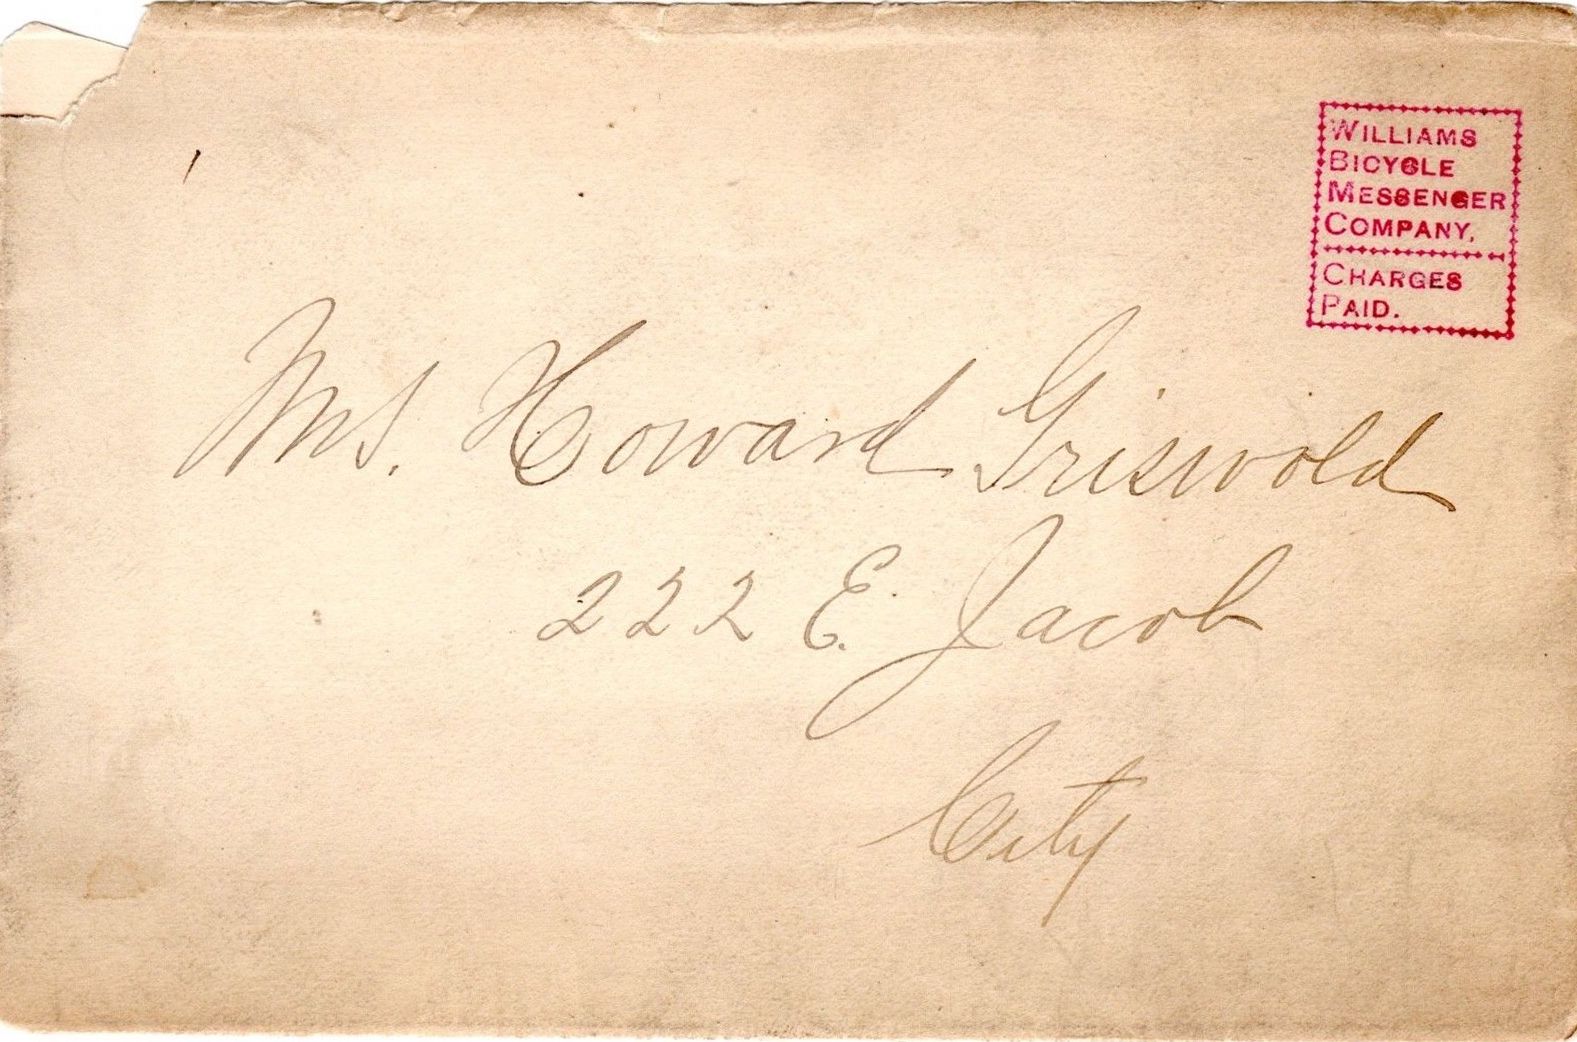 WILLIAMS
BICYCLE
MESSENGER
COMPANY.
CHARGES
PAID.
Mrs. Howard Griswold
222 E. Jacob
City